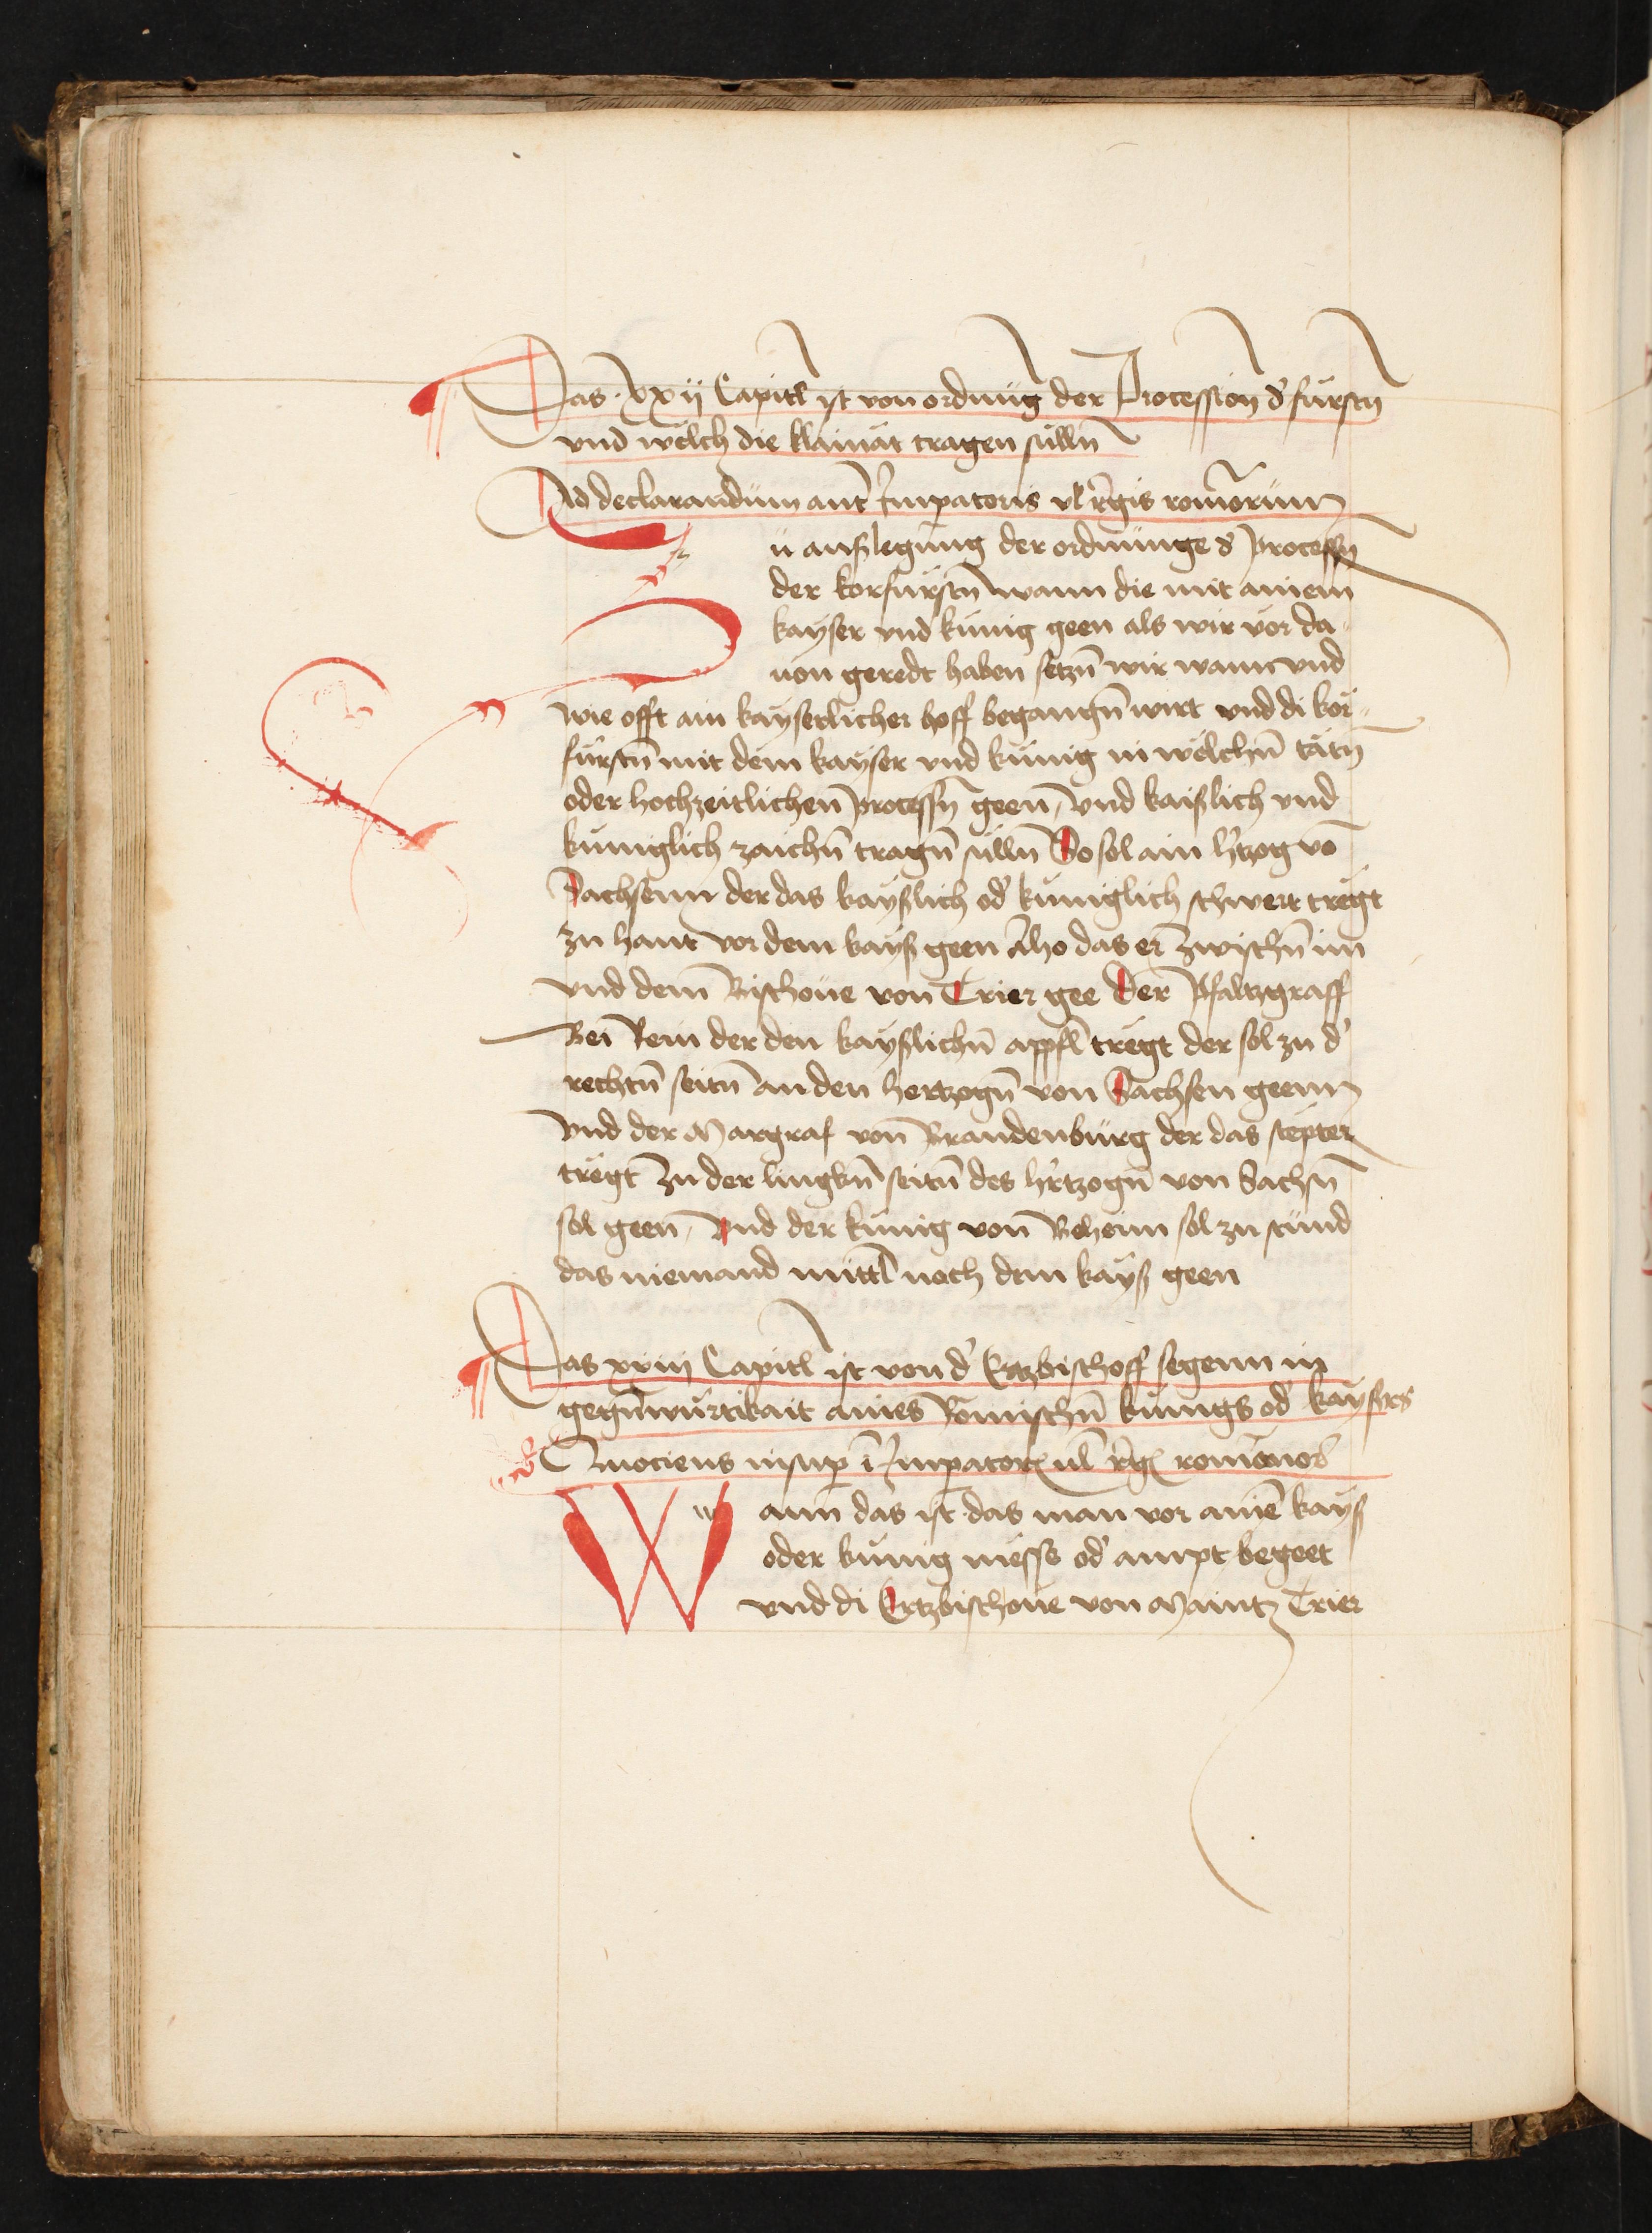 Das xxij Capitl ist von ordnüng der Procession d' fürstn̄
vnd wölch die klainät tragen sülln̄
Ad declarandum aut̄ Imp̄atoris vl̄ Rēgis romōrum
Zü außlegüng der ordnünge d' processn̄
der korfürstn̄ wann die mit ainem
kayser vnd künig geen als wir vor da
uon geredt haben setzn̄ wir wann vnd
wie offt ain kayserlicher hoff begangn̄ wirt vnd di kor-
fürstn̄ mit dem kayser vnd künig in wölchn̄ tätn̄
oder hochzeitlichen processn̄ geen, vnd kaißlich vnd
küniglich zaichn̄ tragn̄ sülln̄ So sol ain h'tzog vō
Sachsenn der das kayßlich od' küniglich schwert tregt
zu hant vor dem kayß geen Also das er zwischn̄ im
vnd dem Bischoue von Trier gee Der Pfaltzgraff
Bei Rein der den kayßlichn̄ appfl tregt der sol zu d'
rechtn̄ seitn̄ an den hertzogn̄ von Sachsen geenn
Vnd der Margraf von Brandenbürg der das scepter
tregt zu der lingkn̄ seitn̄ des h'rtzogn̄ von Sachsn̄
sol geen, Vnd der künig von Beheim sol zu stünd
das niemand mittl noch dem kayß geen
Das xxiij Capitl ist von d' Ertzbischoff segenn in
gegn̄würtikait aines Römischn̄ künigs od' kaysers
Quociens insup̄ ī Imp̄ator̄ ul̄ rēḡ romanor̄
Wann das ist das man vor ainē kayß
oder künig messe od' ampt begeet
vnd di Ertzbischoue von Maintz Trier